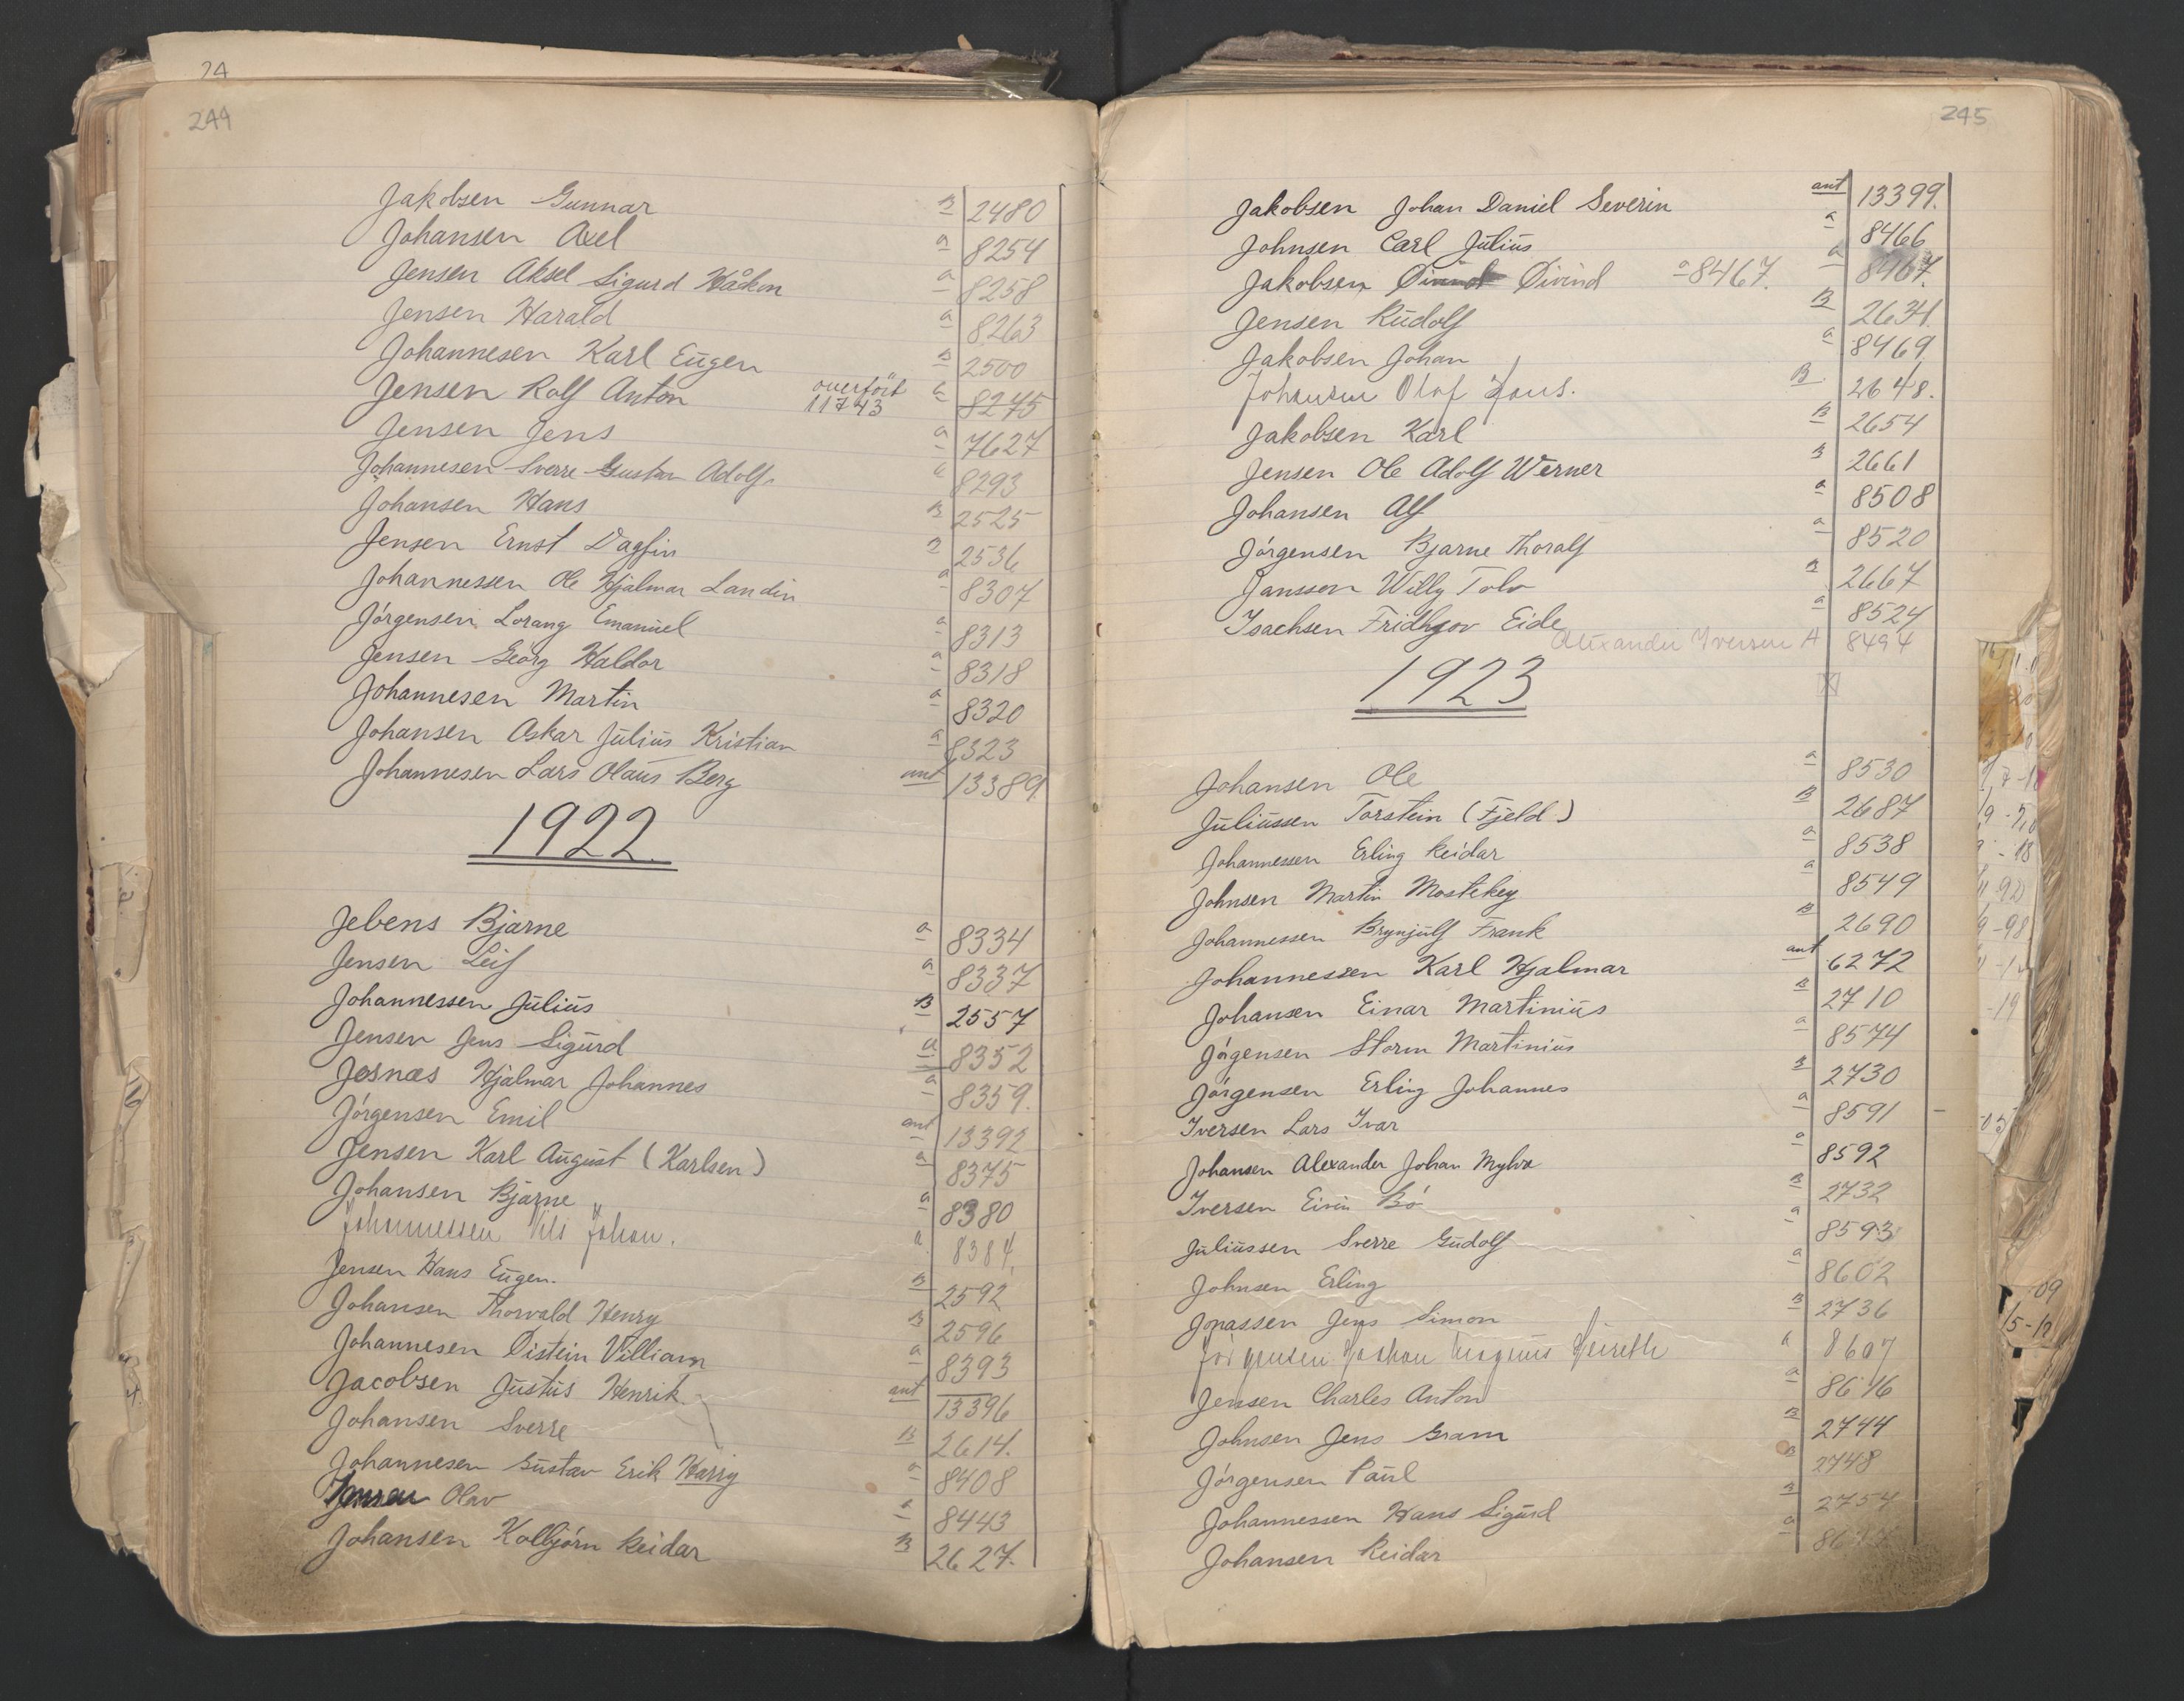 24
244
Jakobsen Gunnar B 2480
Johansen Axel a 8254
Jensen Aksel Sigurd Håkon a 8258
Jensen Harald a 8263
Johannesen Karl Eugen B 2500
Jensen Rolf Anton overfört 11743 a 8275
Jensen Jens a 7627
Johannesen Sverre Gustav Adolf a 8293
Johansen Hans B 2525
Jensen Ernst Dagfin B 2536
Johannessen Ole Hjalmar Landin a 8307
Jörgensen Lorang Emanuel a 8313
Jensen Georg Haldor a 8318
Johannesen Martin a 8320
Johansen Oskar Julius Kristian a 8323
Johannesen Lars Olaus Berg ant 13389
1922
Jebens Bjarne a 8334
Jensen Leif a 8337
Johannessen Julius B 2557
Jensen Jens Sigurd a 8352
Josnæs Hjalmar Johannes a 8359.
Jörgensen Emil ant 13392
Jensen Karl August (Karlsen) a 8375
Johansen Bjarne a 8380
Johannessen Nils Johan. a 8384.
Jensen Hans Eugen. B 2592
Johansen Thorvald Henry B 2596
Johannesen Öistein Villiam a 8393
Jacobsen Justus Henrik ant 13396
Johansen Sverre B 2614.
Johannesen Gustav Erik Harry a 8408
Jensen Olav a 8443
Johansen Kolbjörn Reidar B 2627.
245
Jakobsen Johan Daniel Severin ant 13399.
Johnsen Carl Julius a 8466
Jakobsen Öivind Öivind a 8467. a 8467.
Jensen Rudolf B 2634.
Jakobsen Johan a 8469
Johansen Olaf Hans. B. 2648.
Jakobsen Karl B 2654
Jensen Ole Adolf Werner B 2661
Johansen Alf a 8508
Jörgensen Bjarne Thoralf a 8520
Jansson Willy Tolv B 2667
Isachsen Fridhjov Eide a 8524
Alexander Iversen A 8494
1923
Johansen Ole a 8530
Juliussen Torstein (Fjeld) B 2687
Johannessen Erling Reidar a 8538
Johnsen Martin Mostekey a 8549
Johannessen Brynjulf Frank B 2690
Johannessen Karl Hjalmar ant 6272
Johansen Einar Martinius B 2710
Jörgensen Storm Martinius a 8574
Jörgensen Erling Johannes B 2730
Iversen Lars Ivar a 8591
Johansen Alexander Johan a 8592
Iversen Eivin Bö B 2732
Juliussen Sverre Gudolf a 8593
Johnsen Erling a 8602
Jonassen Jens Simon B 2736
Jörgensen Magnus a 8607
Jensen Charles Anton a 8616
Johnsen Jens Gram B 2744
Jörgensen Paul B 2748
Johannessen Hans Sigurd B 2754
Johansen Reidar a